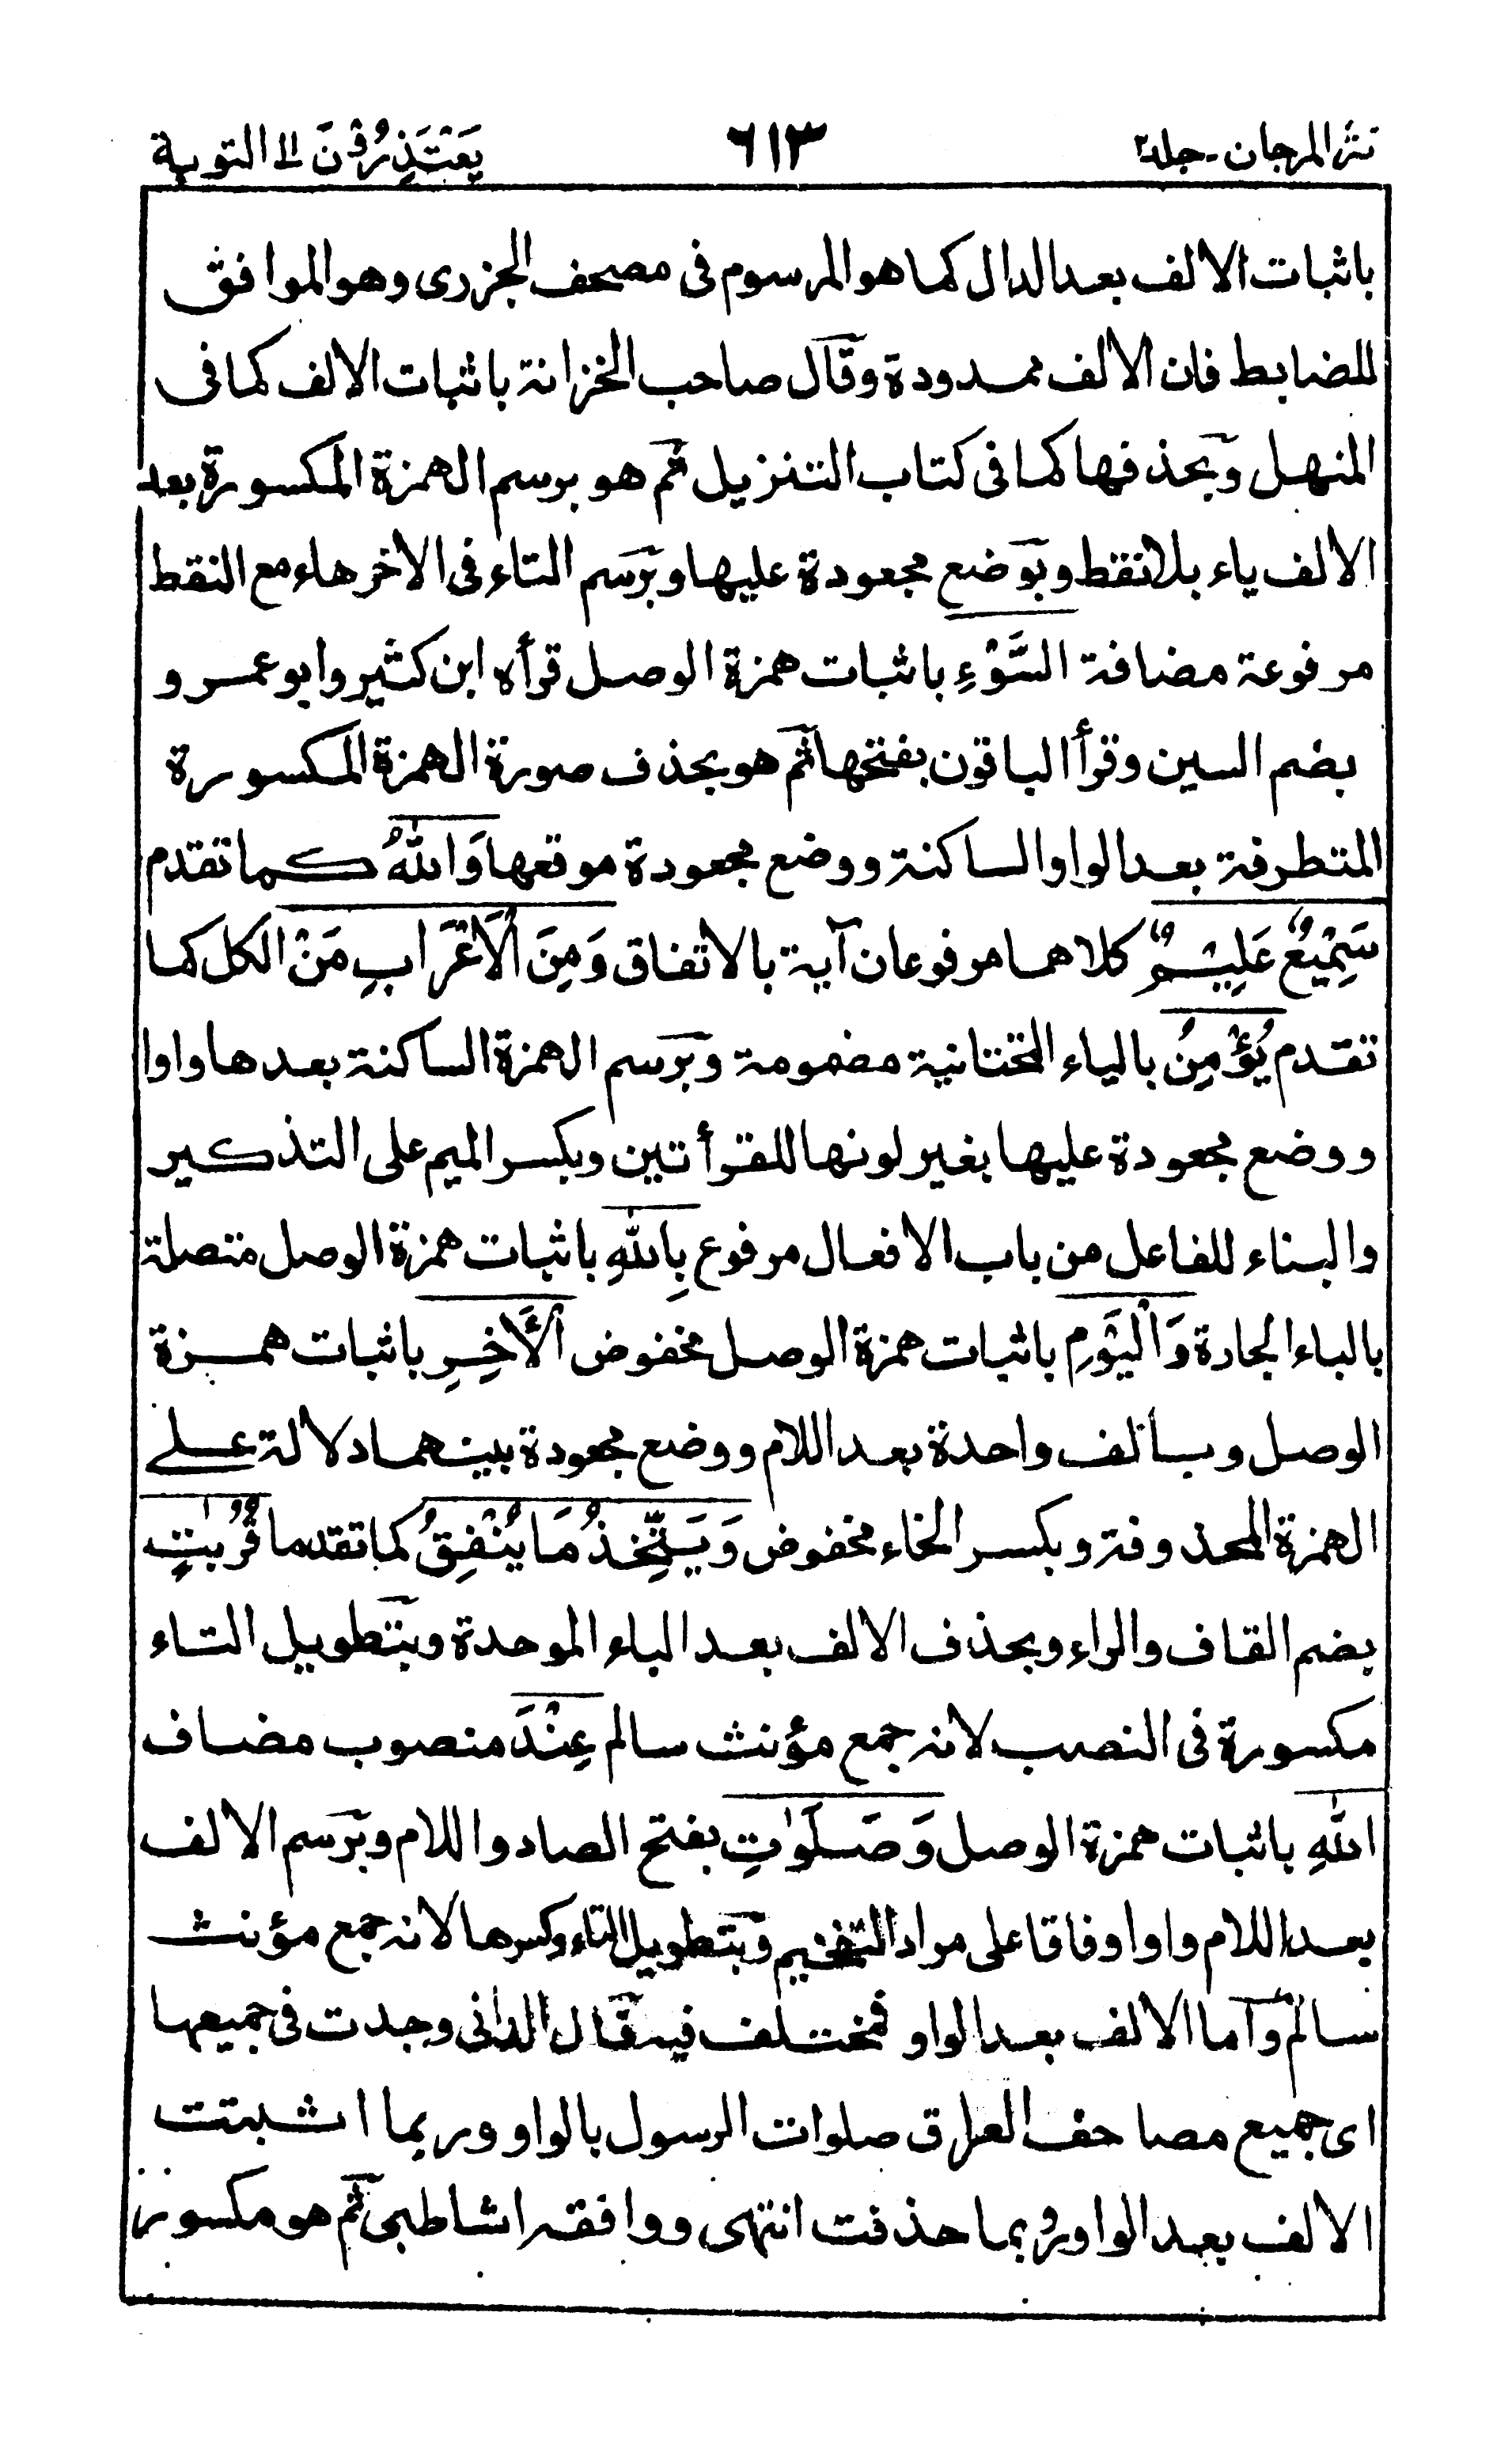 نثر المرجان - جلد٢ ٦١٣ يَعْتَذِرُوْنَ الا التوبة
باثبات الالف بعد الدال كما هو المرسوم فى مصحف الجزرى وهو الموافق
للضابط فان الالف ممدودة وقال صاحب الخزانة باثبات الالف كما فى
المنهل وبحذفها كما فى كتاب التنزيل ثم هو برسم الهمزة المكسورة بعد
الالف ياء بلا نقط وبوضع مجعودة عليها وبرسم التاء فى الاخر هاء مع النقط
مرفوعة مضافة السَّوْءِ باثبات همزة الوصل قرأه ابن كثير وابو عمرو
بضم السين وقرأ الباقون بفتحها ثم هو بحذف صورة الهمزة المكسورة
المتطرفة بعد الواو الساكنة ووضع مجعودة موقعها وَاللهُ كما تقدم
سَمِيْعٌ عَلِيْمٌ كلاهما مرفوعان آية بالاتفاق وَمِنَ الْاَعْرَابِ مَنْ الكل كما
تقدم يُؤْمِنُ بالياء التحتانية مضمومة وبرسم الهمزة الساكنة بعدها واوا
ووضع مجعودة عليها بغير لونها للقرأتين وبكسر الميم على التذكير
والبناء للفاعل من باب الافعال مرفوع بِاللهِ باثبات همزة الوصل متصلة
بالباء الجارة وَالْيَوْمِ باثبات همزة الوصل مخفوض الْاٰخِرِ باثبات همزة
الوصل وبالف واحدة بعد اللام ووضع مجعودة بينهما دلالة على
الهمزة المحذوفة وبكسر الخاء مخفوض وَيَتَّخِذُ مَا يُنْفِقُ كما تقدما قُرُبٰتٍ
بضم القاف والراء وبحذف الالف بعد الباء الموحدة وبتطويل التاء
مكسورة فى النصب لانه جمع مؤنث سالم عِنْدَ منصوب مضاف
اللهِ باثبات همزة الوصل وَصَلَوٰتِ بفتح الصاد واللام وبرسم الالف
بعد اللام واوا وفاقا على مراد التفخيم وبتطويل التاء وكسرها لانه جمع مؤنث
سالم واما الالف بعد الواو فمختلف فيه قال الدانى وجدت فى جميعها
اى جميع مصاحف العراق صلوات الرسول بالواو وربما اثبتت
الالف بعد الواو وربما حذفت انتهى ووافقه الشاطبى ثم هو مكسور